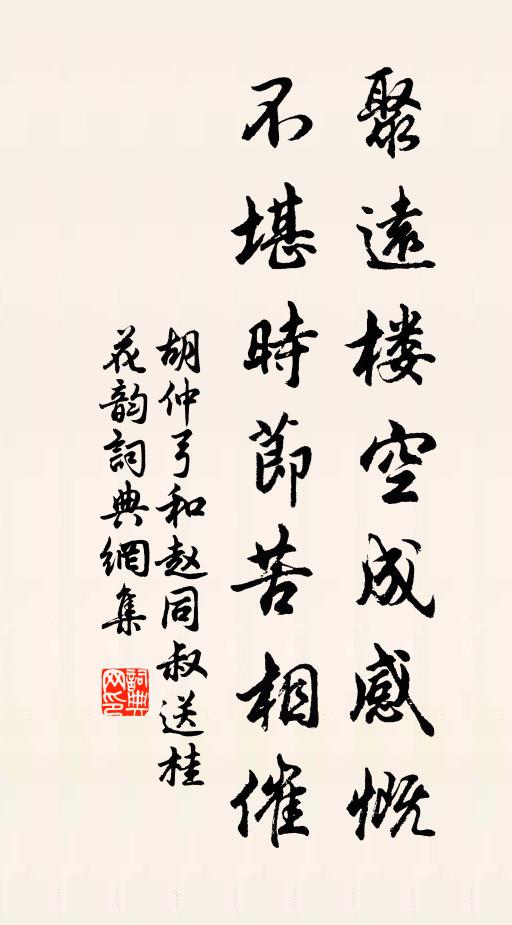 聚遠楼空成感慨
不堪時節苦相催
胡仲弓和赵同叔送桂
花韵詞典網集
詞典网印